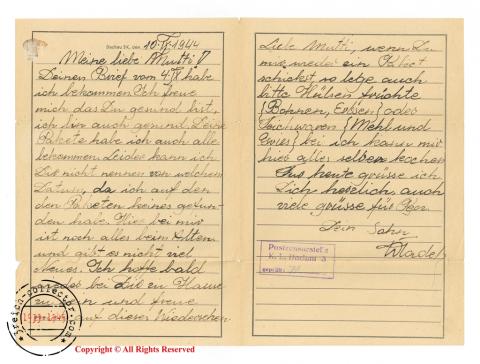 Dachau 3K, den 10.IX.1944
Meine liebe Mutti!
Deinen Brief vom 4.IX habe
ich bekommen. Ich freue
mich das Du gesund bist,
ich bin auch gesund. Deine
Pakete habe ich auch alle
bekommen. Leider kann ich
Dir nicht nennen von welchem
Datum, da ich auf den
den Paketen keines gefun-
den habe. Hier bei mir
ist noch alles beim Alten
und gibt es nicht viel
Neues. Ich hoffe bald
bei Dir zu Hause
und freue
auf dieses Wiedersehen.
Liebe Mutti, wenn Du
mir wieder ein Paket
schickst, so lege auch
bitte Hülsen früchte
(Bohnen, Erbsen) oder
Teichwaren (Mehl und
Gries) bei ich kann mir
hier alles selber kochen
Für heute grüsse ich
Dich herzlich, auch
viele grüsse für
Dein Sohn
Postzensurstelle
K. L. Dachau 3
geprüft:
treich-collector.com
1933-1945
Copyright © All Rights Reserved